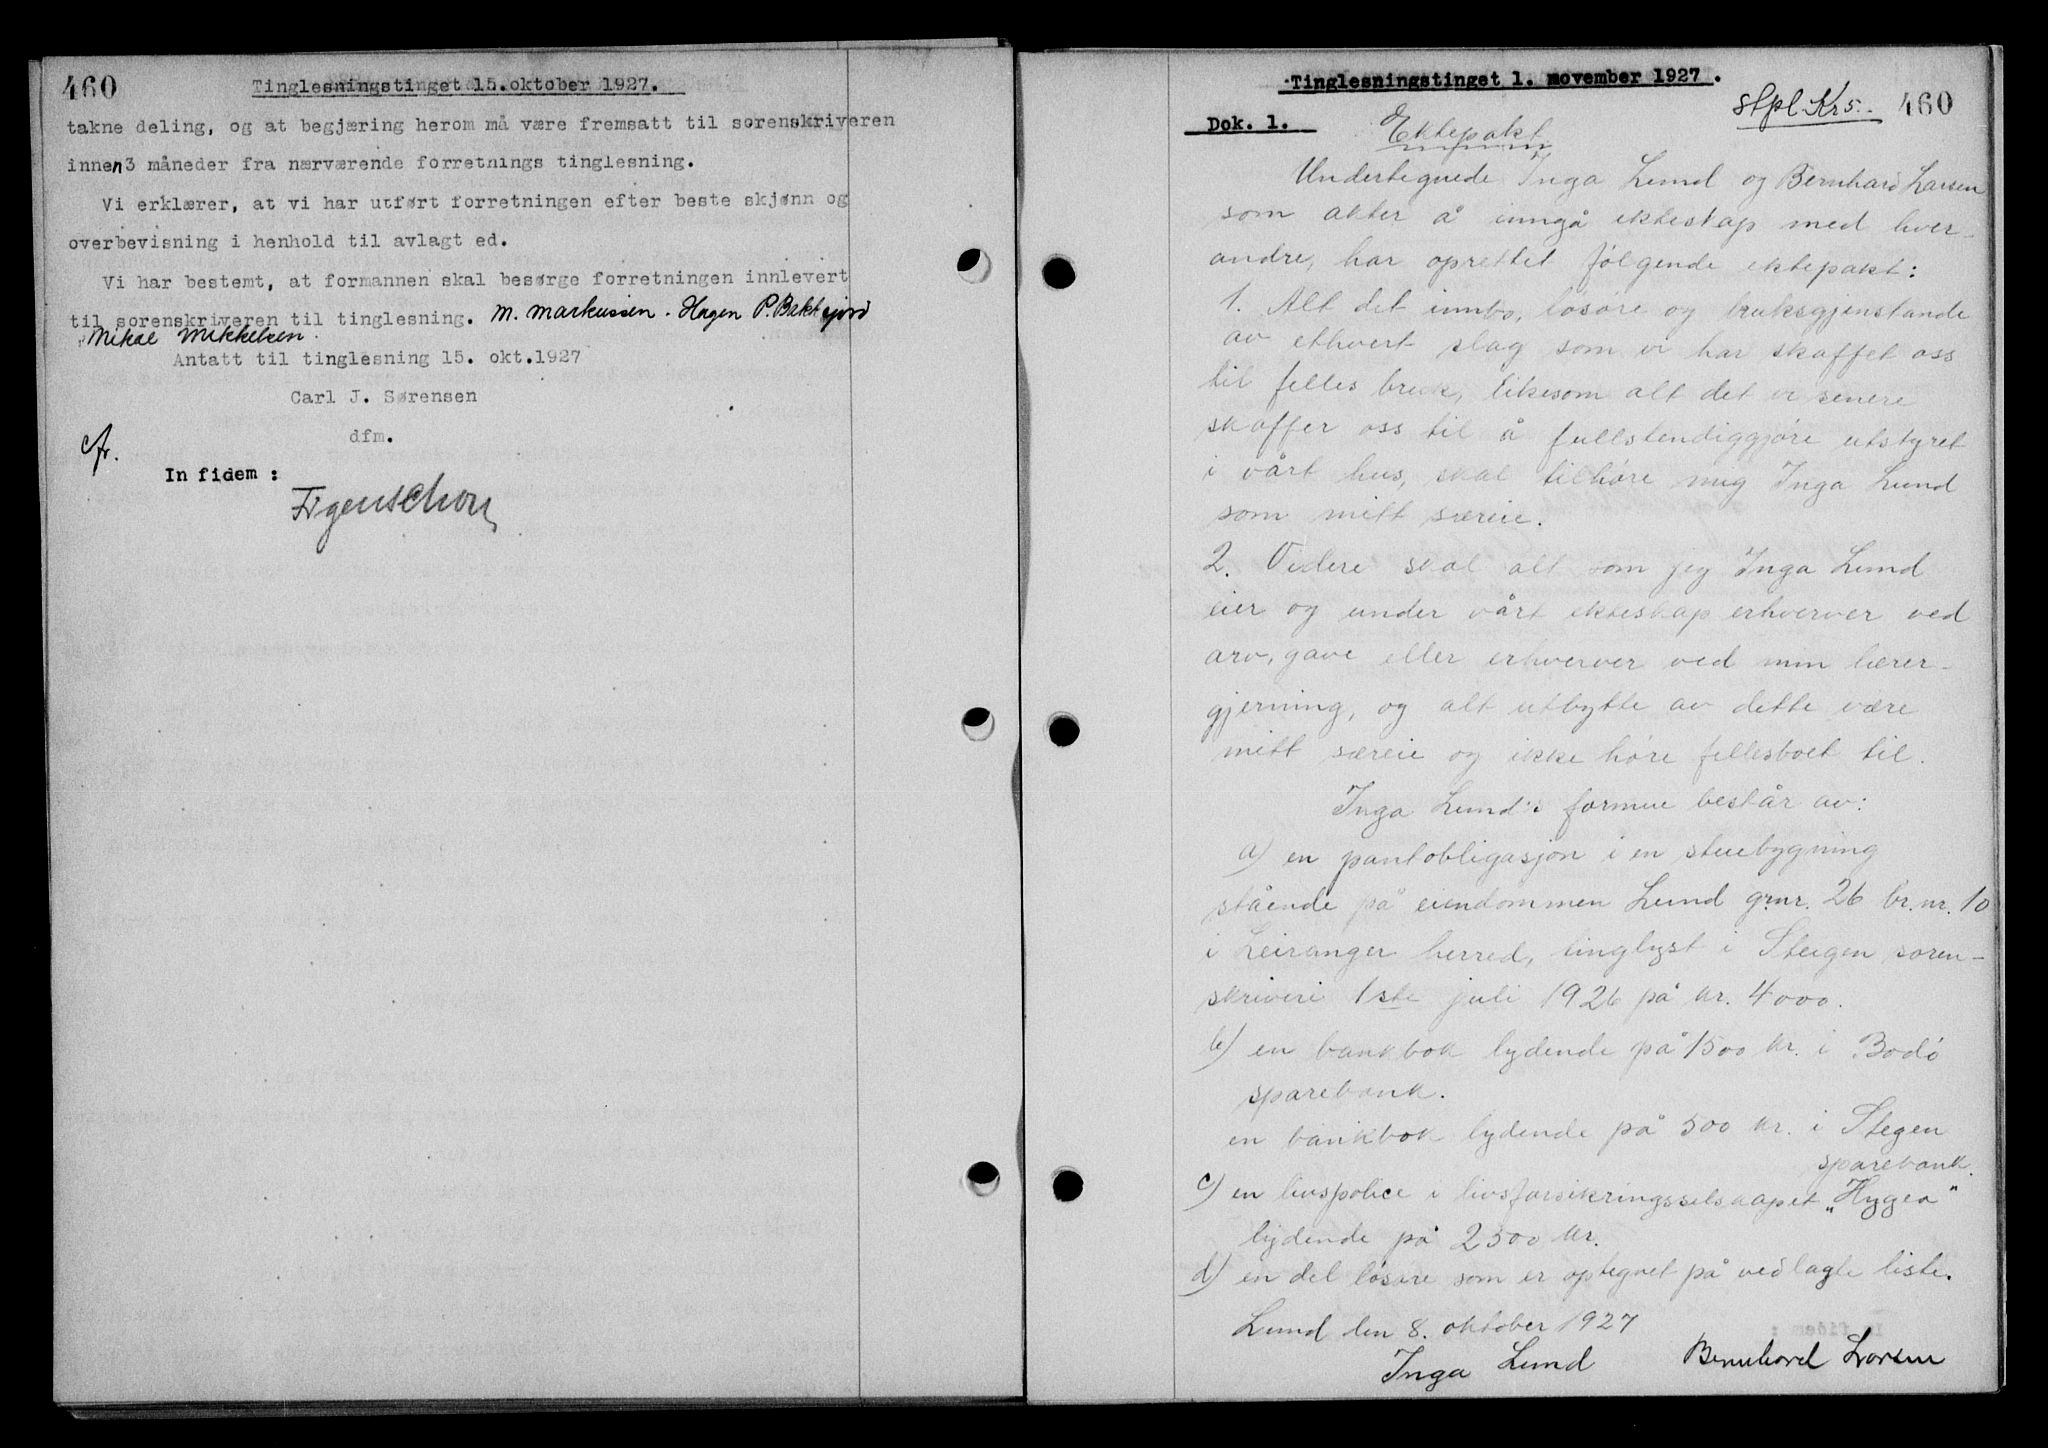 460
Tinglesningstinget 15.oktober 1927.
takne deling, og at begjæring herom må være fremsatt til sorenskriveren
innen3 måneder fra nærværende forretnings tinglesning.
Vi erklærer, at vi har utført forretningen efter beste skjønn og
overbevisning i henhold til avlagt ed.
Vi har bestemt, at formannen skal besørge forretningen innlevert
til sorenskriveren til tinglesning. M. Markussen. Hagen P. Bakkejord
Mikal Mikkelsen.
Antatt til tinglesning 15. okt.1927
Carl J. Sørensen
dfm.
cfr.
In fidem :
Tinglesningstinget 1. november 1927 .
stpl. Kr 5.-
460
Dok. 1.
Ektepakt
Undertegnede Inga Lund og Bernhard Larsen
som akter å inngå ekteskap med hver-
andre, har oprettet følgende ektepakt:
1. Alt det innbo, løsøre og bruksgjenstande
av ethvert slag som vi har skaffet oss
til felles bruk, likesom alt det vi senere
skaffer oss til å fullstendiggjøre utstyret
i vårt hus, skal tilhøre mig Inga Lund
som mitt særeie.
2. Videre skal alt som jeg Inga Lund
eier og under vårt ekteskap erhverver ved
arv, gave eller erhverver ved min lærer-
gjerning, og alt utbytte av dette være
mitt særeie og ikke høre fellesboet til.
Inga Lund's formue består av:
a) en pantobligasjon i en stuebygning
stående på eiendommen Lund grnr. 26 br.nr. 10
i Leiranger herred, tinglyst i Steigen soren-
skriveri 1ste juli 1926 på kr. 4000.
b) en bankbok lydende på 1500 kr. i Bodø
sparebank.
en bankbok lydende på 500 kr. i Stegen
sparebank.
c) en livspolice i livsforsikringsselskapet „Hygea"
lydende på 2500 kr.
d) en del løsøre som er optegnet på vedlagte liste.
Lund den 8. oktober 1927
Inga Lund Bernhard Larsen